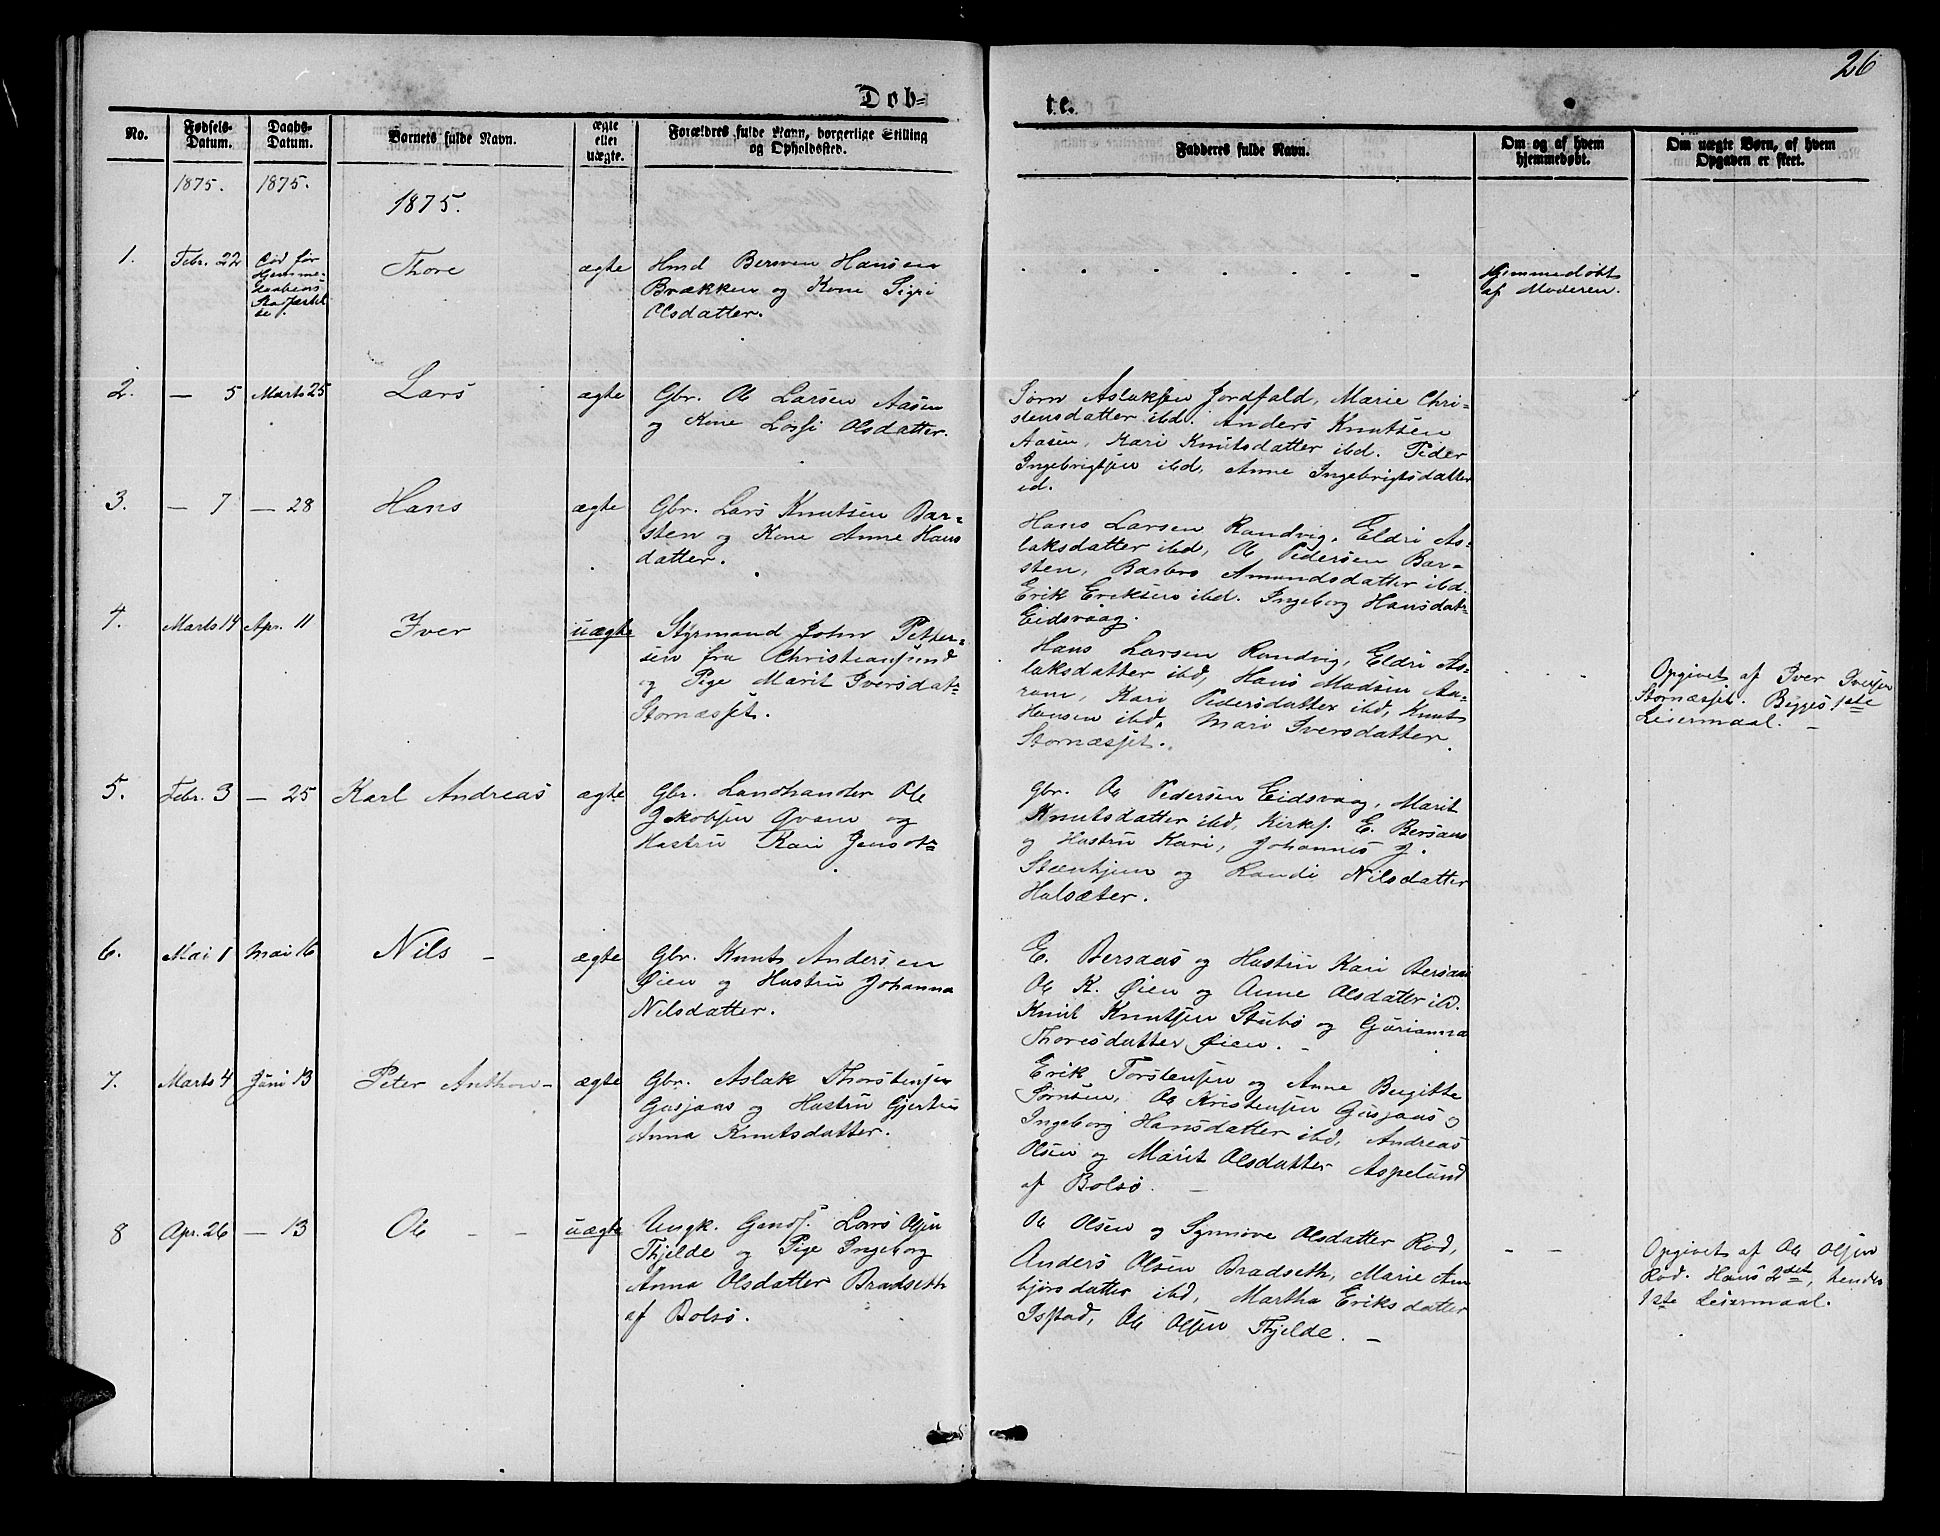 26
Døb-
te.
No.
Fødsels-
Datum.
Daabs-
Datum.
Barnets fulde Navn.
ægte
eller
uægte.
Forældres fulde Navn, borgerlige Stilling
og Opholdssted.
Fadderes fulde Navn.
Om og af hvem
hjemmedøbt.
Om uægte Børn, af hvem
Opgaven er skeet.
1875.
1875.
1875.
1.
Febr. 22
Død før
Hjemme-
daabens
Stadfæstel
se.
Thore
ægte
Hmd Hansen
Brækken og Kone Sigri
Olsdatter.
Hjemmedøbt
af Moderen.
2.
— 5
Marts 25
Lars
ægte
Gbr. Ole Larsen Aasen
og Kone Olsdatter.
Sørn Aslaksen Jordfald, Marie Chri-
stensdatter ibd. Anders Knutsen
Aasen, Kari Knutsdatter ibd. Peder
Ingebrigtsen ibd, Anne Ingebrigtsdatter
id.
3.
— 7
— 28
Hans
ægte
Gbr. Lars Knutsen Bar-
sten og Kone Anne Hans
datter.
Hans Larsen Randvig, Eldri As-
laksdatter ibd, Ole Pedersen Bar-
sten, Barbro Amundsdatter ibd.
Erik Eriksen ibd. Ingeborg Hansdat-
Eidsvaag.
4.
Marts 14
Apr. 11
Iver
uægte
Styrmand John Petter-
sen fra Christiansund
og Pige Marit Iversdat-
Stornæsset.
Hans Larsen Randvig, Eldri As-
laksdatter ibd, Hans Madsen Aa-
ram, Kari Pedersdatter ibd, Knut
Hansen ibd, Mari Iversdatter
Stornæsset.
Opgivet af Iver Iversen
Stornæsset. Begges 1ste
Leiermaal. —
5.
Febr. 3
— 25
Karl Andreas
ægte
Gbr. Landhandler Ole
Jakobsen og
Hustru Kari Jensdtr
Gbr. Ole Pedersen Eidsvaag, Marit
Knutsdatter ibd, Kirks. E. Bersaas
og Hustru Kari, Johannes J.
og Randi Nilsdatter
Halsæter.
6.
Mai 1
Mai 16
Nils —
ægte
Gbr. Knut Andersen
Øien og Hustru Johanna
Nilsdatter.
E. Bersaas og Hustru Kari Bersaas
Ole K. Øien og Anne Olsdatter ibd.
Knut Knutsen Stubø og Gurianna
Thoresdatter Øien. —
7.
Marts 4
Juni 13
Peter Anthon —
ægte
Gbr. Aslak Thorstensen
Gusjaas og Hustru Gjertru
Anna Knutsdatter.
Erik Torstensen og Anne Birgitte
Sørnsen, Ole Kristensen Gusjaas og
Ingeborg Hansdatter ibd, Andreas
Olsen og Marit Olsdatter Aspelund
af Bolsø. —
8
Apr. 26
— 13
Ole — —
uægte
Ungk. Gaads. Lars Olsen
Tjelde og Pige Ingeborg
Anna Olsdatter Bradseth
af Bolsø.
Ole Olsen og Synnøve Olsdatter Rød,
Anders Olsen Bradseth, Marie Am
bjørsdatter ibd, Martha Eriksdatter
Istad, Ole Olsen Tjelde. —
— —
Opgivet af Ole Olsen
Rød. Hans 2det, hendes
1ste Leiermaal.